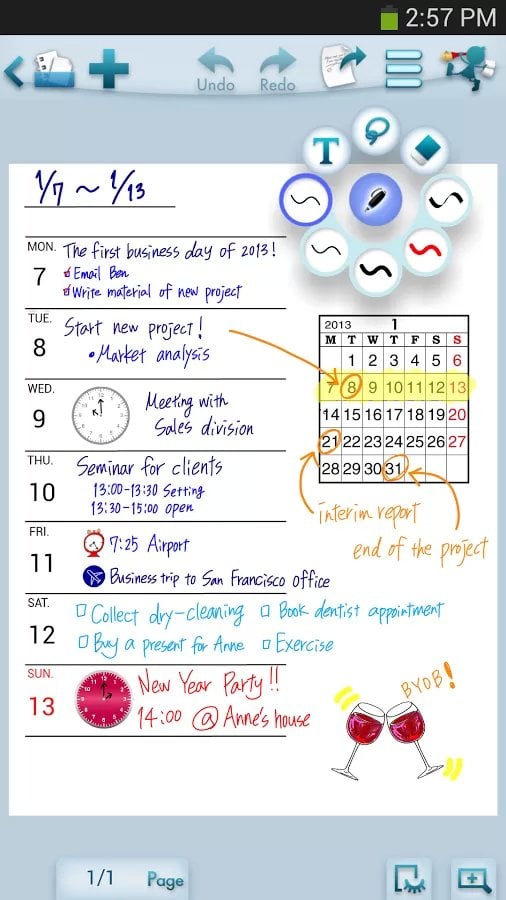 2:57 PM
Undo
Redo
T
1/7 ~ 1/13
MON.
7
The first business day of 2013!
Email Ben
Write material of new project
TUE.
8
Start new project!
• Market analysis
WED.
9
Meeting with
Sales division
THU.
10
Seminar for clients
13:00-13:30 Setting
13:30-15:00 open
FRI.
11
7:25 Airport
Business trip to San Francisco office
SAT.
12
Collect dry-cleaning
Book dentist appointment
Buy a present for Anne
Exercise
SUN.
13
New Year Party!!
14:00 @ Anne's house
2013 1
M T W T F S S
1 2 3 4 5 6
7 8 9 10 11 12 13
14 15 16 17 18 19 20
21 22 23 24 25 26 27
28 29 30 31
interim report
end of the project
BYOB!
1/1 Page